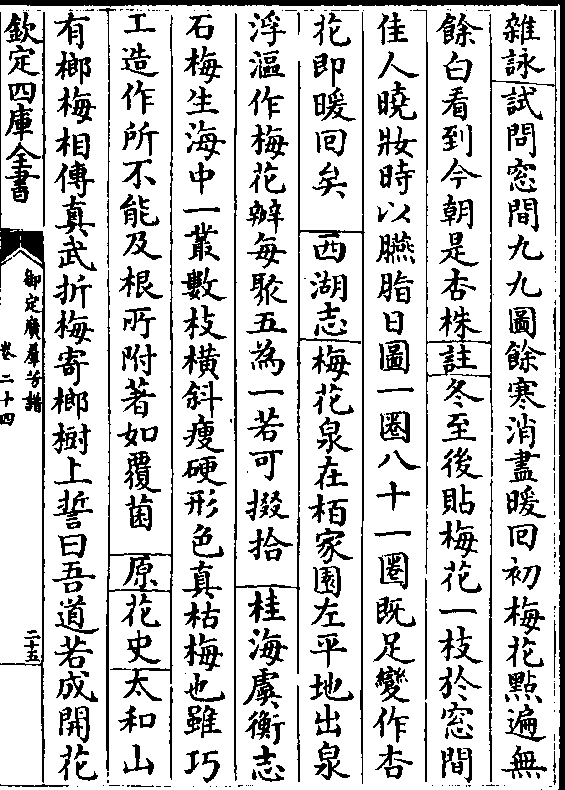 雜詠試問窓間九九圖餘寒消盡暖回初梅花㸃遍無
餘白看到今朝是杏株註冬至後貼梅花一枝於窓間
佳人曉妝時以臙脂日圖一圈八十一圈既足變作杏
花即暖回矣 西湖志梅花泉在栢家園左平地出泉
浮漚作梅花瓣每聚五為一若可掇拾 桂海虞衡志
石梅生海中一叢數枝橫斜瘦硬形色真枯梅也雖巧
工造作所不能及根所附著如覆菌 原花史太和山
有榔梅相傳真武折梅寄榔樹上誓曰吾道若成開花
欽定四庫全書
御定廣羣芳譜
卷二十四
二十五